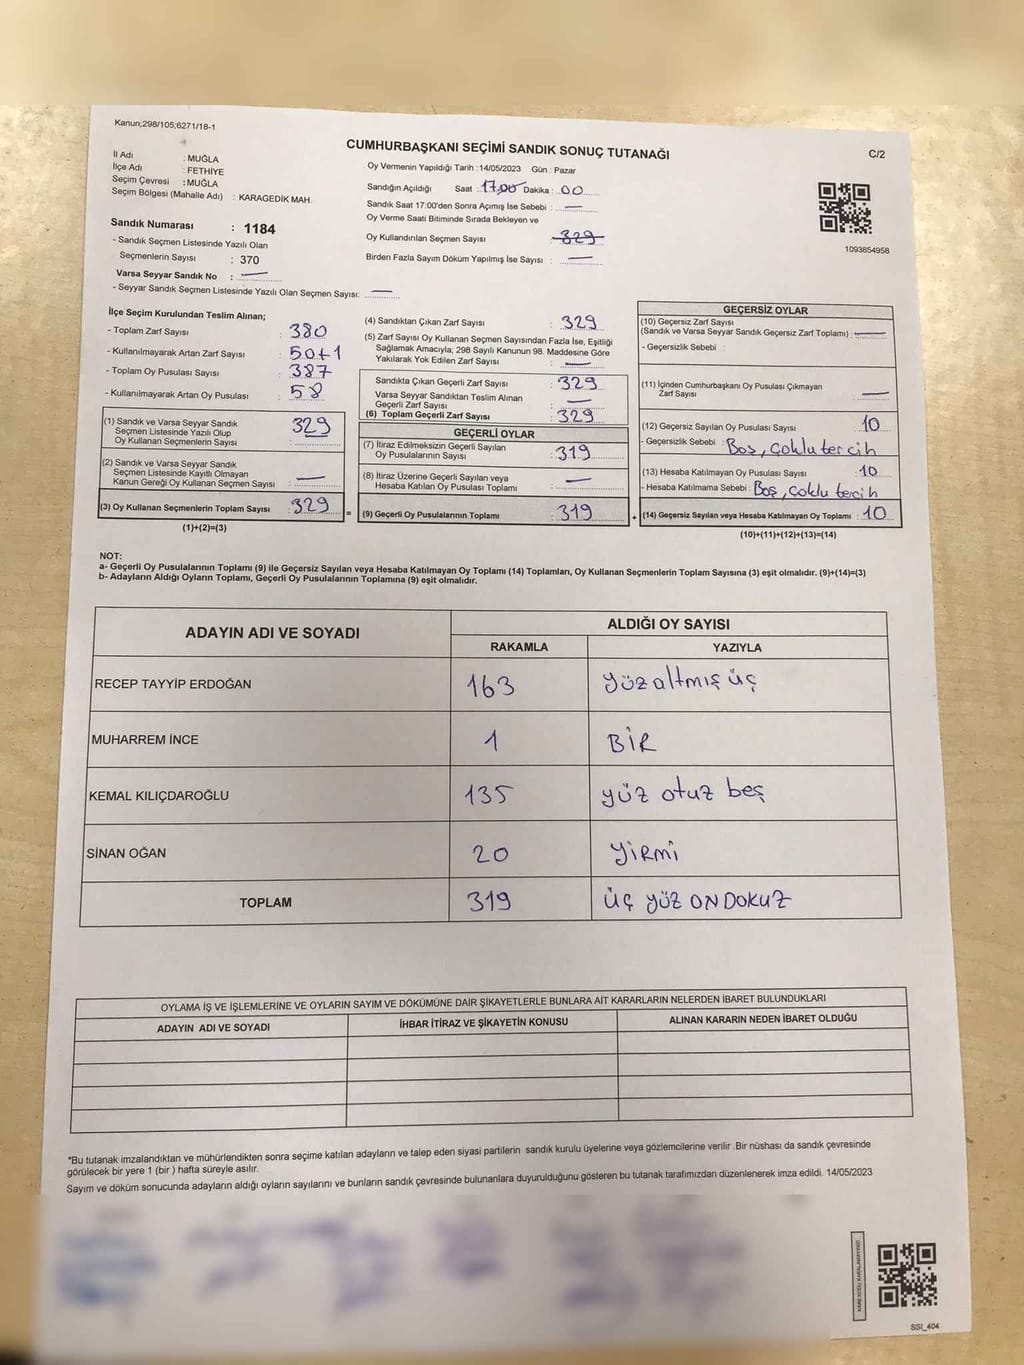 Kanun;298/105;6271/18-1
CUMHURBAŞKANI SEÇİMİ SANDIK SONUÇ TUTANAĞI
C/2
İl Adı : MUĞLA
İlçe Adı : FETHİYE
Seçim Çevresi : MUĞLA
Seçim Bölgesi (Mahalle Adı) : KARAGEDİK MAH.
Sandık Numarası : 1184
- Sandık Seçmen Listesinde Yazılı Olan
Seçmenlerin Sayısı : 370
Varsa Seyyar Sandık No : —
- Seyyar Sandık Seçmen Listesinde Yazılı Olan Seçmen Sayısı: —
Oy Vermenin Yapıldığı Tarih : 14/05/2023 Gün : Pazar
Sandığın Açıldığı Saat : 17,00 Dakika : 00
Sandık Saat 17:00'den Sonra Açımış İse Sebebi : —
Oy Verme Saati Bitiminde Sırada Bekleyen ve
Oy Kullandırılan Seçmen Sayısı 329
Birden Fazla Sayım Döküm Yapılmış İse Sayısı : —
1093854958
İlçe Seçim Kurulundan Teslim Alınan;
- Toplam Zarf Sayısı : 380
- Kullanılmayarak Artan Zarf Sayısı : 50+1
- Toplam Oy Pusulası Sayısı : 387
- Kullanılmayarak Artan Oy Pusulası : 58
(1) Sandık ve Varsa Seyyar Sandık
Seçmen Listesinde Yazılı Olup
Oy Kullanan Seçmenlerin Sayısı : 329
(2) Sandık ve Varsa Seyyar Sandık
Seçmen Listesinde Kayıtlı Olmayan
Kanun Gereği Oy Kullanan Seçmen Sayısı : —
(3) Oy Kullanan Seçmenlerin Toplam Sayısı : 329
(1)+(2)=(3)
(4) Sandıktan Çıkan Zarf Sayısı : 329
(5) Zarf Sayısı Oy Kullanan Seçmen Sayısından Fazla İse, Eşitliği
Sağlamak Amacıyla; 298 Sayılı Kanunun 98. Maddesine Göre
Yakılarak Yok Edilen Zarf Sayısı : —
Sandıkta Çıkan Geçerli Zarf Sayısı : 329
Varsa Seyyar Sandıktan Teslim Alınan
Geçerli Zarf Sayısı : —
(6) Toplam Geçerli Zarf Sayısı : 329
GEÇERLİ OYLAR
(7) İtiraz Edilmeksizin Geçerli Sayılan
Oy Pusulalarının Sayısı : 319
(8) İtiraz Üzerine Geçerli Sayılan veya
Hesaba Katılan Oy Pusulası Toplamı : —
= (9) Geçerli Oy Pusulalarının Toplamı : 319
GEÇERSİZ OYLAR
(10) Geçersiz Zarf Sayısı
(Sandık ve Varsa Seyyar Sandık Geçersiz Zarf Toplamı) : —
- Geçersizlik Sebebi :
(11) İçinden Cumhurbaşkanı Oy Pusulası Çıkmayan
Zarf Sayısı : —
(12) Geçersiz Sayılan Oy Pusulası Sayısı : 10
- Geçersizlik Sebebi : Boş, çoklu tercih
(13) Hesaba Katılmayan Oy Pusulası Sayısı : 10
- Hesaba Katılmama Sebebi : Boş, çoklu tercih
+ (14) Geçersiz Sayılan veya Hesaba Katılmayan Oy Toplamı : 10
(10)+(11)+(12)+(13)=(14)
NOT:
a- Geçerli Oy Pusulalarının Toplamı (9) ile Geçersiz Sayılan veya Hesaba Katılmayan Oy Toplamı (14) Toplamları, Oy Kullanan Seçmenlerin Toplam Sayısına (3) eşit olmalıdır. (9)+(14)=(3)
b- Adayların Aldığı Oyların Toplamı, Geçerli Oy Pusulalarının Toplamına (9) eşit olmalıdır.
ADAYIN ADI VE SOYADI
ALDIĞI OY SAYISI
RAKAMLA YAZIYLA
RECEP TAYYİP ERDOĞAN 163 yüz altmış üç
MUHARREM İNCE 1 BİR
KEMAL KILIÇDAROĞLU 135 yüz otuz beş
SİNAN OĞAN 20 YİRMİ
TOPLAM 319 üç yüz ONDOKUZ
OYLAMA İŞ VE İŞLEMLERİNE VE OYLARIN SAYIM VE DÖKÜMÜNE DAİR ŞİKAYETLERLE BUNLARA AİT KARARLARIN NELERDEN İBARET BULUNDUKLARI
ADAYIN ADI VE SOYADI İHBAR İTİRAZ VE ŞİKAYETİN KONUSU ALINAN KARARIN NEDEN İBARET OLDUĞU
*Bu tutanak imzalandıktan ve mühürlendikten sonra seçime katılan adayların ve talep eden siyasi partilerin sandık kurulu üyelerine veya gözlemcilerine verilir .Bir nüshası da sandık çevresinde
görülecek bir yere 1 (bir ) hafta süreyle asılır.
Sayım ve döküm sonucunda adayların aldığı oyların sayılarını ve bunların sandık çevresinde bulunanlara duyurulduğunu gösteren bu tutanak tarafımızdan düzenlenerek imza edildi. 14/05/2023
SSI_404